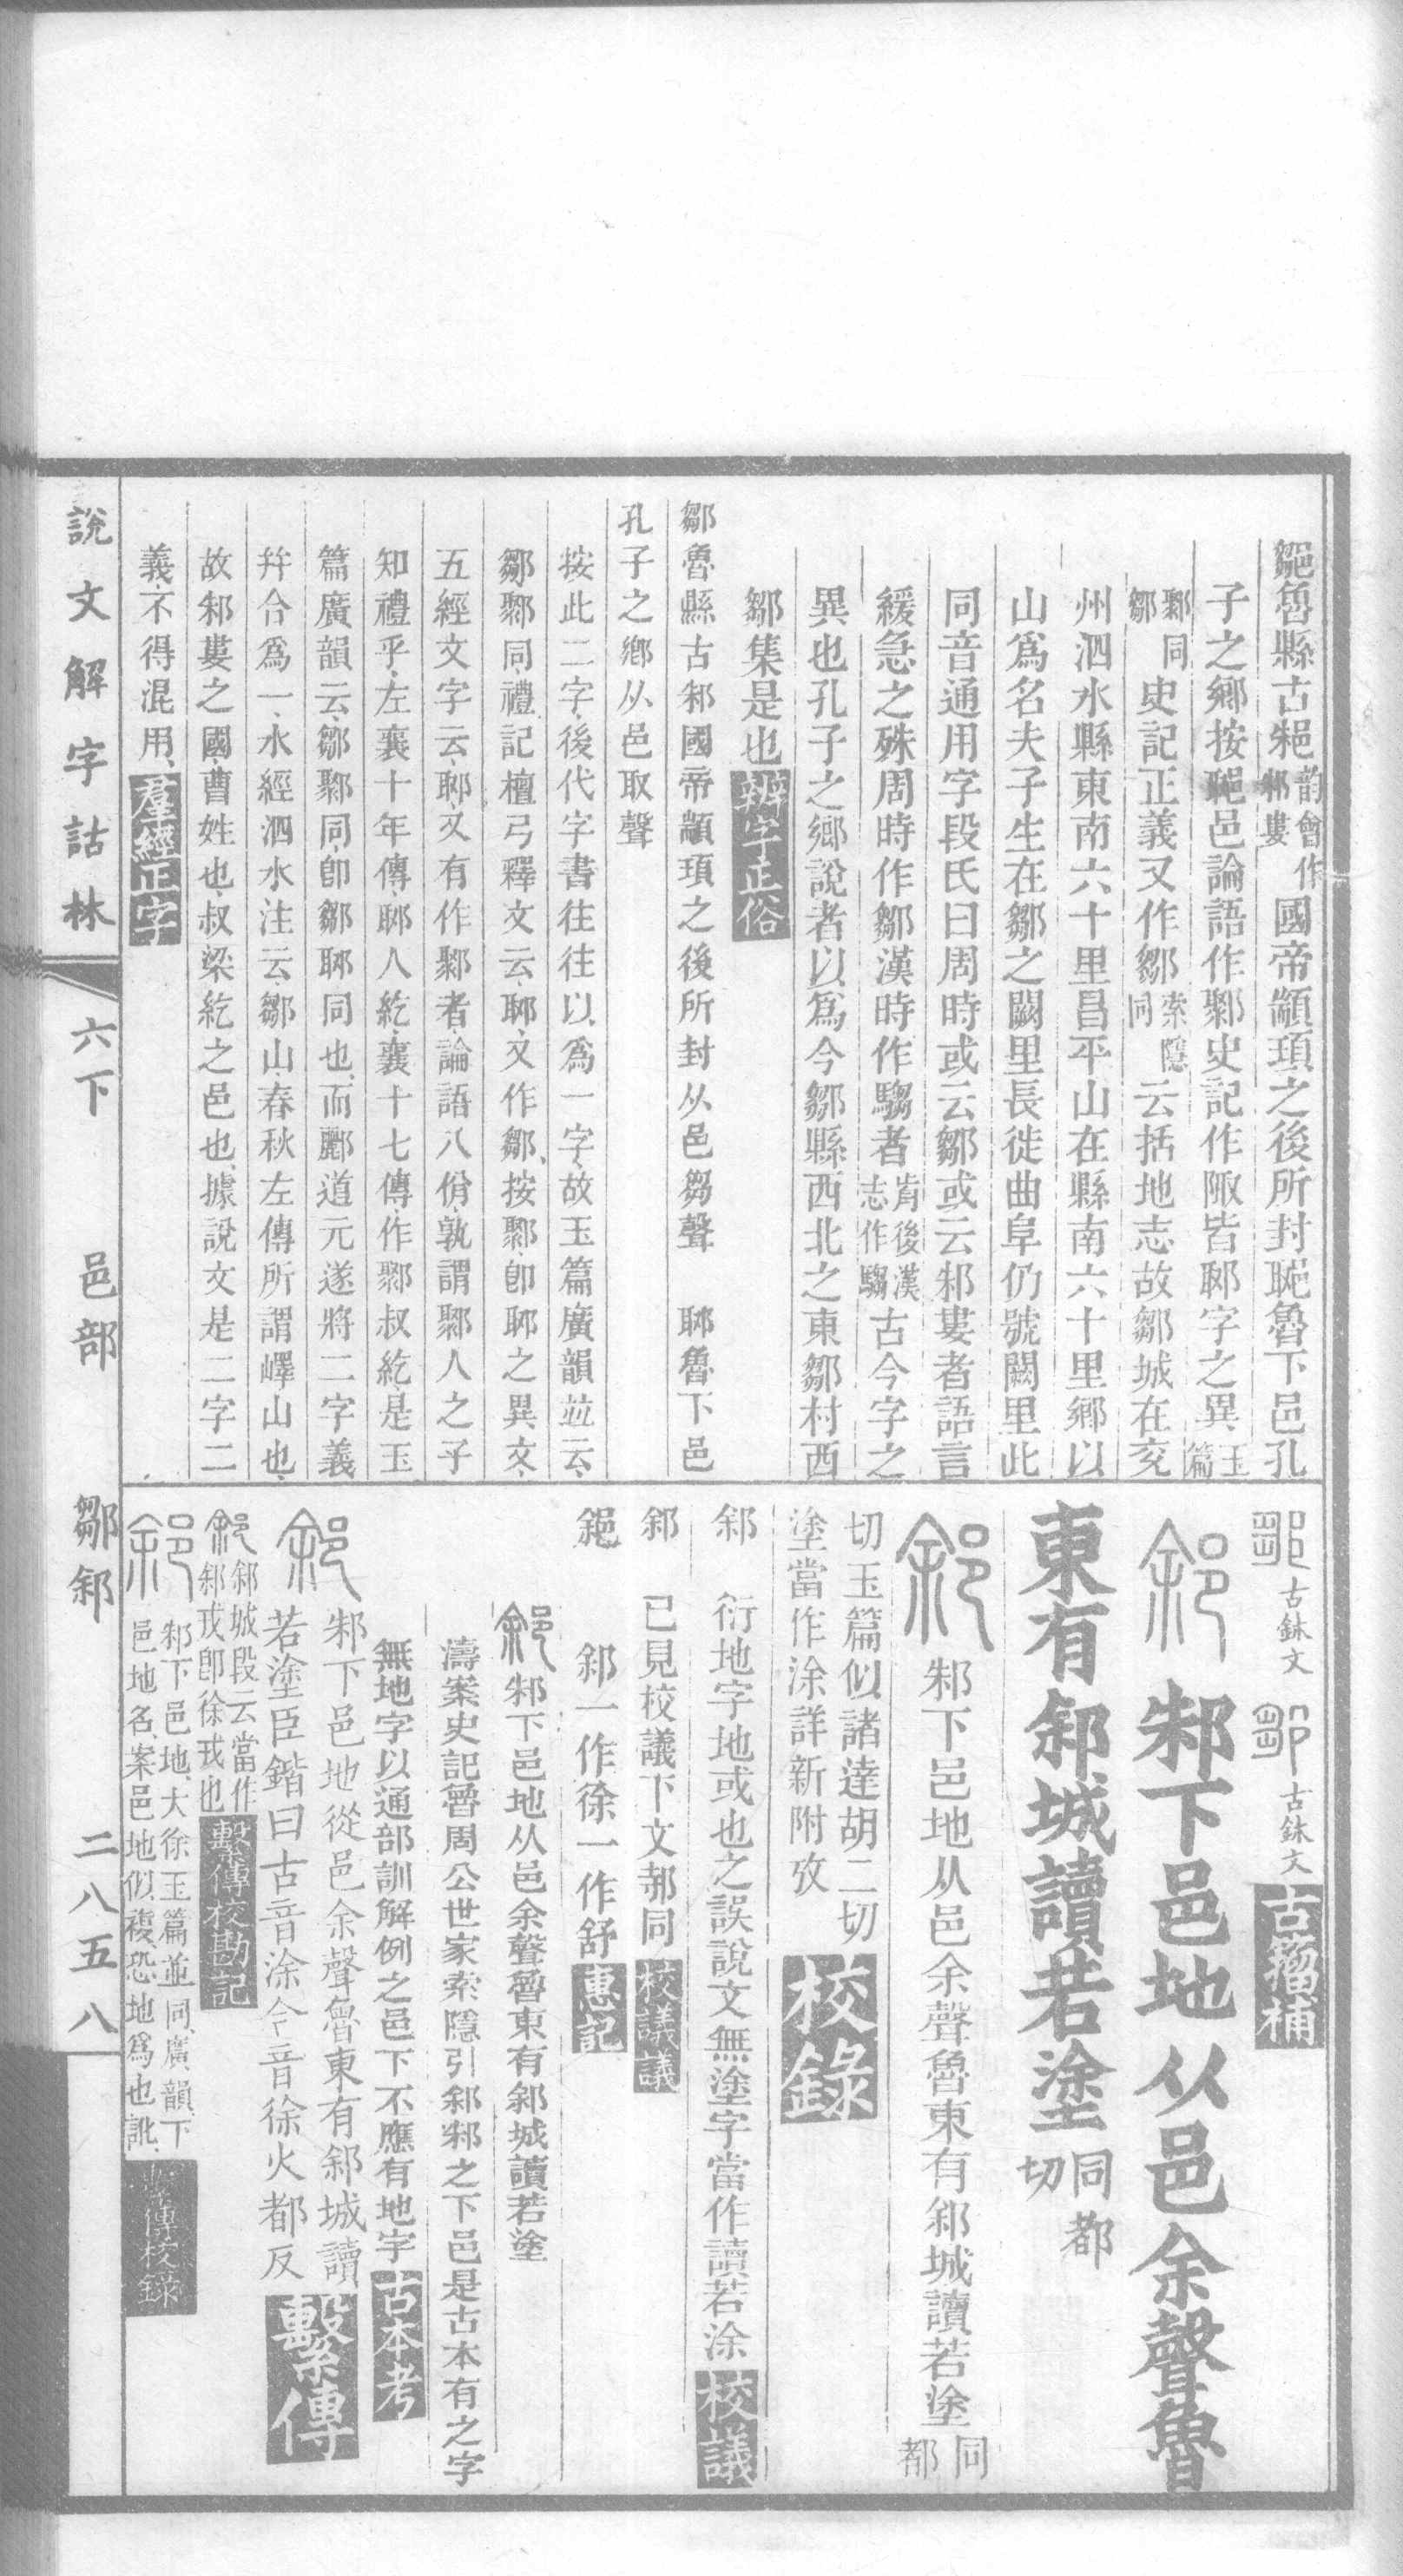 鄒魯縣古邾韵會作邾婁國帝顓頊之後所封郰魯下邑孔
子之鄉按郰邑論語作鄹史記作陬皆郰字之異玉篇
鄹同鄒史記正義又作鄒索隱同云括地志故鄒城在兗
州泗水縣東南六十里昌平山在縣南六十里鄉以
山爲名夫子生在鄒之闕里長徙曲阜仍號闕里此
同音通用字段氏曰周時或云鄒或云邾婁者語言
緩急之殊周時作鄒漢時作騶者前後漢志作騶古今字之
異也孔子之鄉說者以爲今鄒縣西北之東鄒村西
鄒集是也辨字正俗
鄒魯縣古邾國帝顓頊之後所封从邑芻聲　郰魯下邑
孔子之鄉从邑取聲
按此二字後代字書往往以爲一字故玉篇廣韻竝云
鄒鄹同禮記檀弓釋文云郰又作鄒按鄹卽郰之異文
五經文字云郰又有作鄹者論語八佾孰謂鄹人之子
知禮乎左襄十年傳郰人紇襄十七傳作鄹叔紇是玉
篇廣韻云鄒鄹同卽鄒郰同也而酈道元遂將二字義
幷合爲一水經泗水注云鄒山春秋左傳所謂嶧山也
故邾婁之國曹姓也叔梁紇之邑也據說文是二字二
義不得混用羣經正字
古鉥文　古鉥文　古籀補
邾下邑地从邑余聲魯
東有䣄城讀若塗同都切
䣄邾下邑地从邑余聲魯東有䣄城讀若塗同都
切玉篇似諸達胡二切
塗當作涂詳新附攷校錄
䣄　衍地字地或也之誤說文無塗字當作讀若涂校議
䣄　已見校議下文郝同校議議
䣄　䣄一作徐一作舒惠記
䣄邾下邑地从邑余聲魯東有䣄城讀若塗
濤案史記魯周公世家索隱引䣄邾之下邑是古本有之字
無地字以通部訓解例之邑下不應有地字古本考
䣄邾下邑地從邑余聲魯東有䣄城讀
若塗臣鍇曰古音涂今音徐火都反繫傳
䣄䣄城段云當作
䣄戎卽徐戎也繫傳校勘記
䣄邾下邑地大徐玉篇並同廣韻下
邑地名案邑地似複恐地爲也訛傳校錄
說文解字詁林　六下　邑部　鄒䣄　二八五八